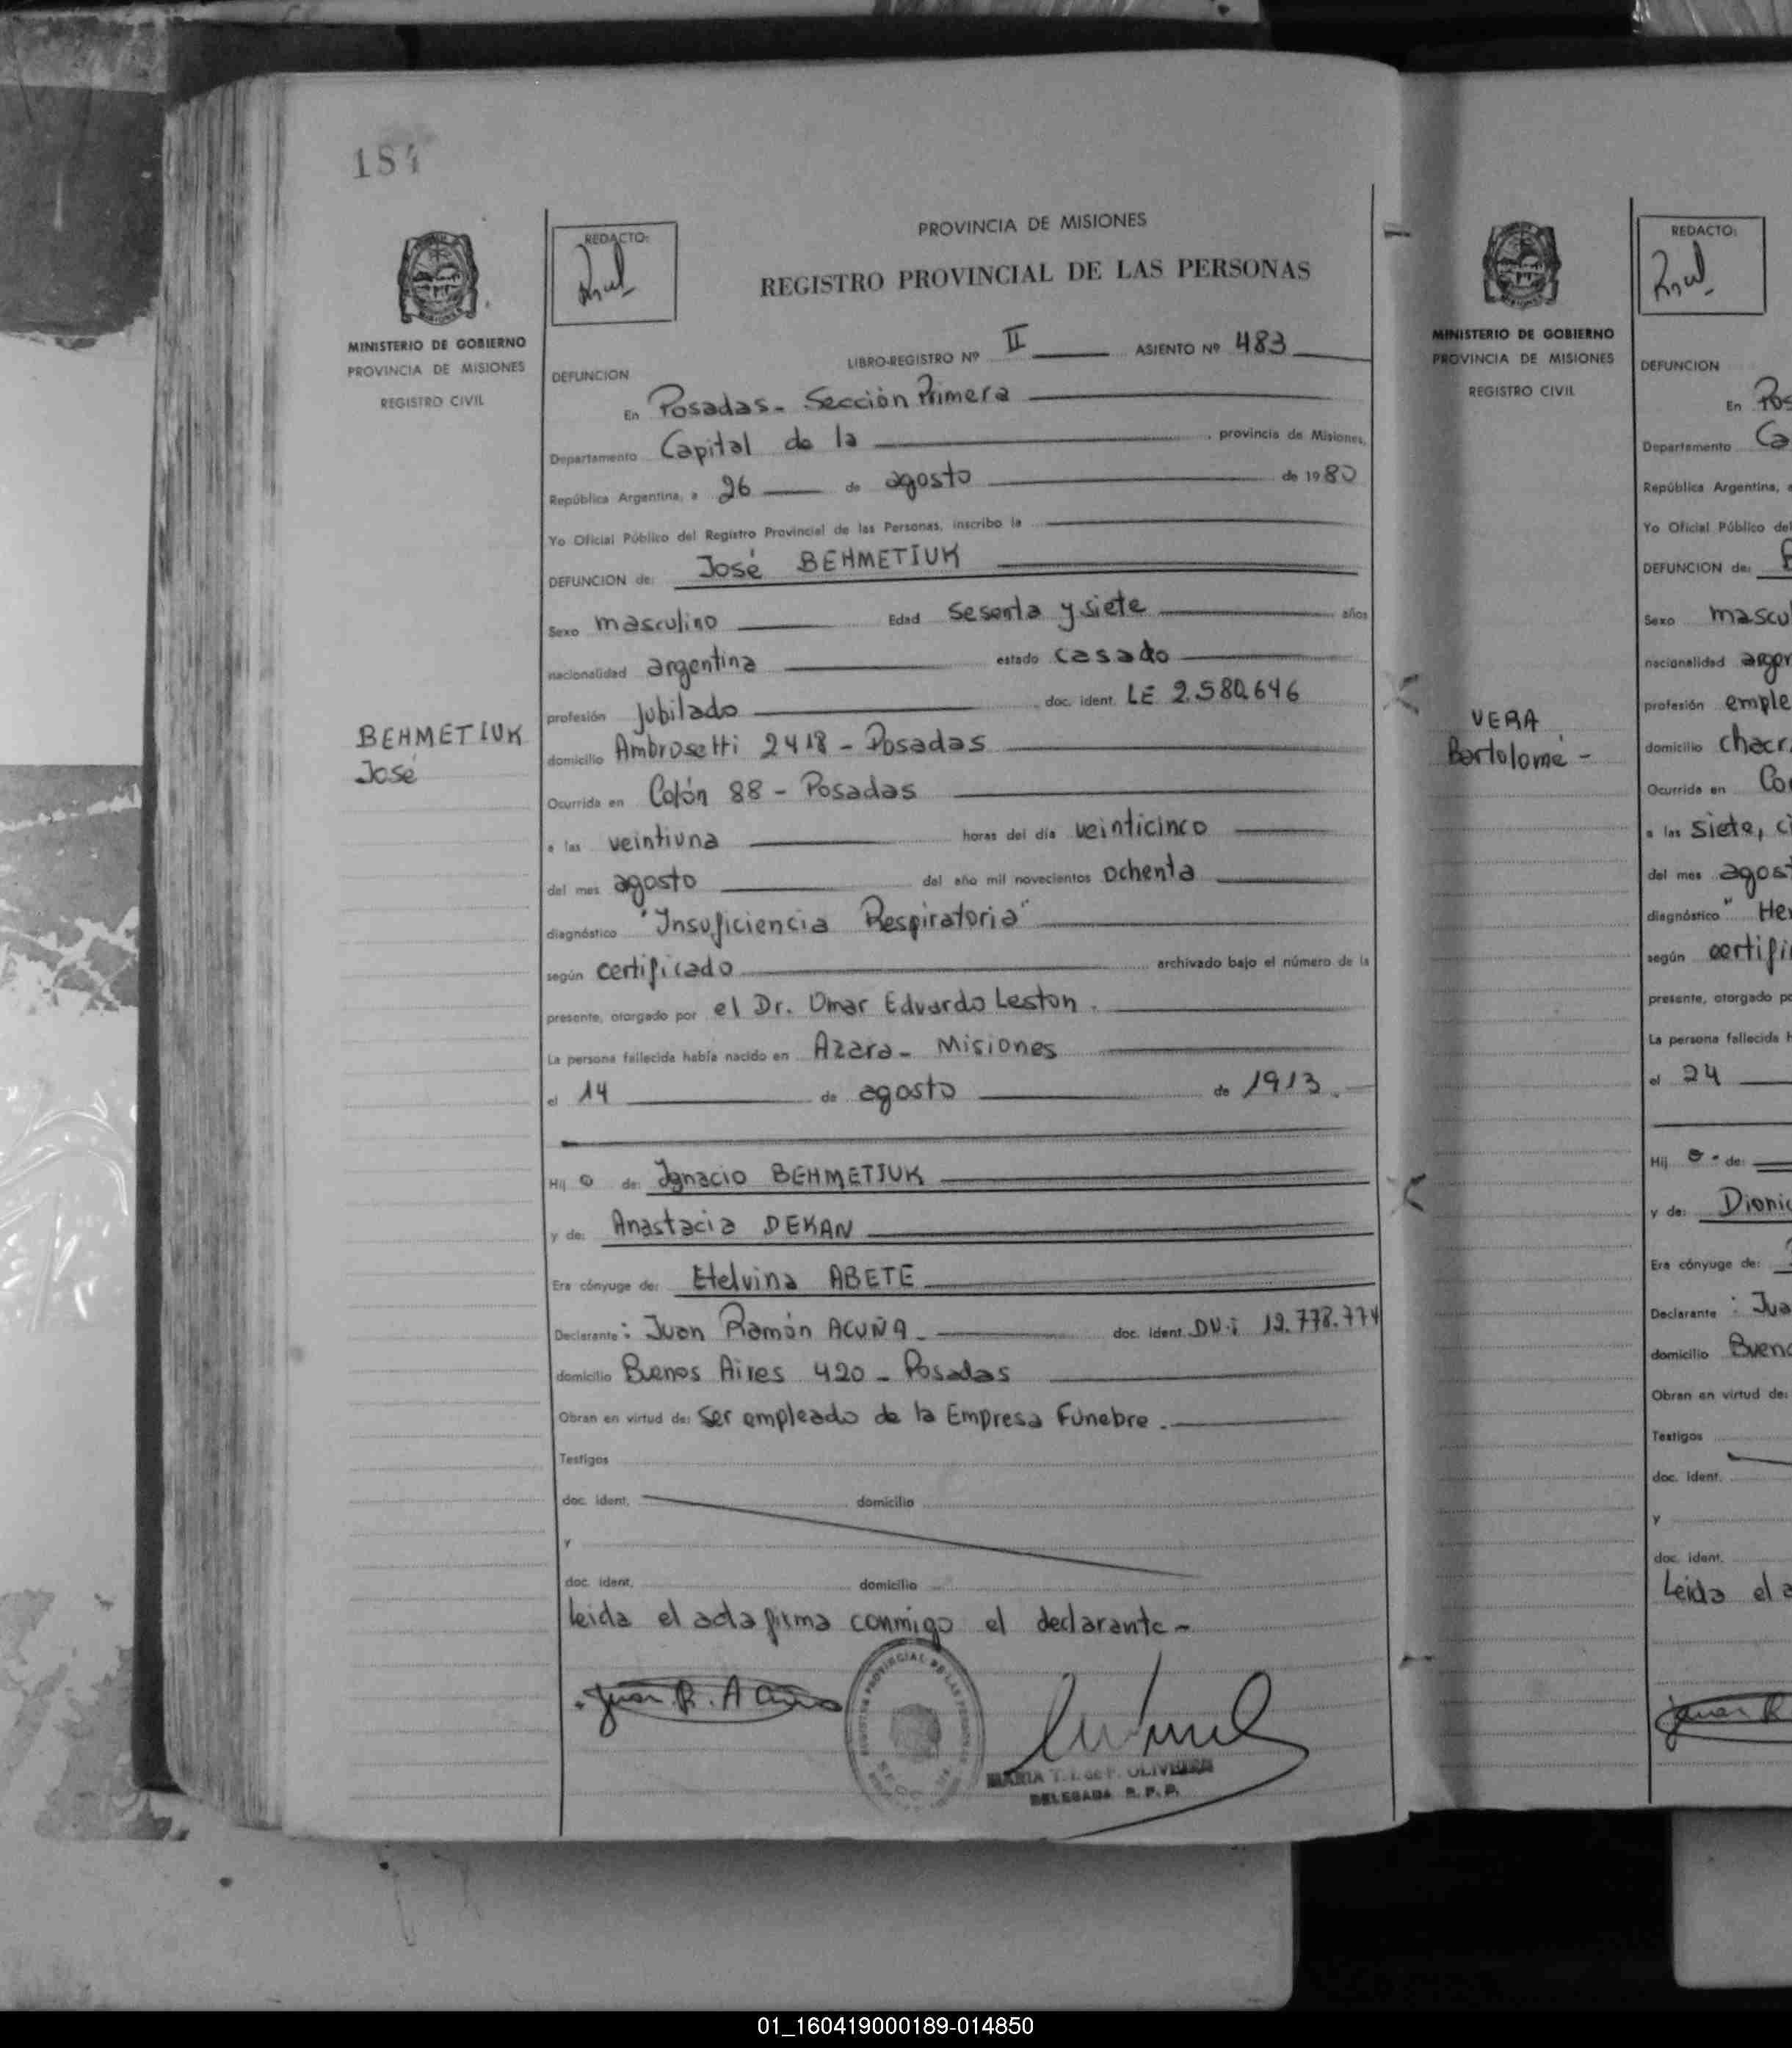 184
MINISTERIO DE GOBIERNO
PROVINCIA DE MISIONES
REGISTRO CIVIL
BEHMETIUK
José
REDACTO:
PROVINCIA DE MISIONES
REGISTRO PROVINCIAL DE LAS PERSONAS
LIBRO-REGISTRO Nº II ASIENTO Nº 483
DEFUNCION
En Posadas - Sección Primera
Departamento Capital de la , provincia de Misiones,
República Argentina, a 26 de agosto de 1980
Yo Oficial Público del Registro Provincial de las Personas, inscribo la
DEFUNCION de: José BEHMETIUK
Sexo masculino Edad sesenta y siete años
nacionalidad argentina estado casado
profesión jubilado doc. ident. LE 2.580.646
domicilio Ambrosetti 2418 - Posadas
Ocurrida en Colón 88 - Posadas
a las veintiuna horas del día veinticinco
del mes agosto del año mil novecientos ochenta
diagnóstico "Insuficiencia Respiratoria"
según certificado archivado bajo el número de la
presente, otorgado por el Dr. Omar Eduardo Leston.
La persona fallecida había nacido en Azara - Misiones
el 14 de agosto de 1913.
Hij o de: Ignacio BEHMETIUK
y de: Anastacia DEKAN
Era cónyuge de: Etelvina ABETE
Declarante: Juan Ramón ACUÑA - doc. ident. DU.i 12.778.774
domicilio Buenos Aires 420 - Posadas
Obran en virtud de: ser empleado de la Empresa Fúnebre.
Testigos
doc. ident. domicilio
y
doc. ident. domicilio
Leida el acta firma conmigo el declarante -
Juan R. Acuña
REGISTRO PROVINCIAL DE LAS PERSONAS
MARIA T. I. de F. OLIVEIRA
DELEGADA R. P. P.
MINISTERIO DE GOBIERNO
PROVINCIA DE MISIONES
REGISTRO CIVIL
VERA
Bartolomé -
REDACTO:
DEFUNCION
En Pos
Departamento Ca
República Argentina, a
Yo Oficial Público del
DEFUNCION de:
Sexo mascu
nacionalidad argen
profesión emple
domicilio chacr
Ocurrida en Co
a las siete, ci
del mes agost
diagnóstico " He
según certifi
presente, otorgado po
La persona fallecida h
el 24
Hij o - de:
y de: Dionic
Era cónyuge de:
Declarante : Jua
domicilio Bueno
Obran en virtud de:
Testigos
doc. ident.
y
doc. ident.
Leida el a
Juan R
01_160419000189-014850